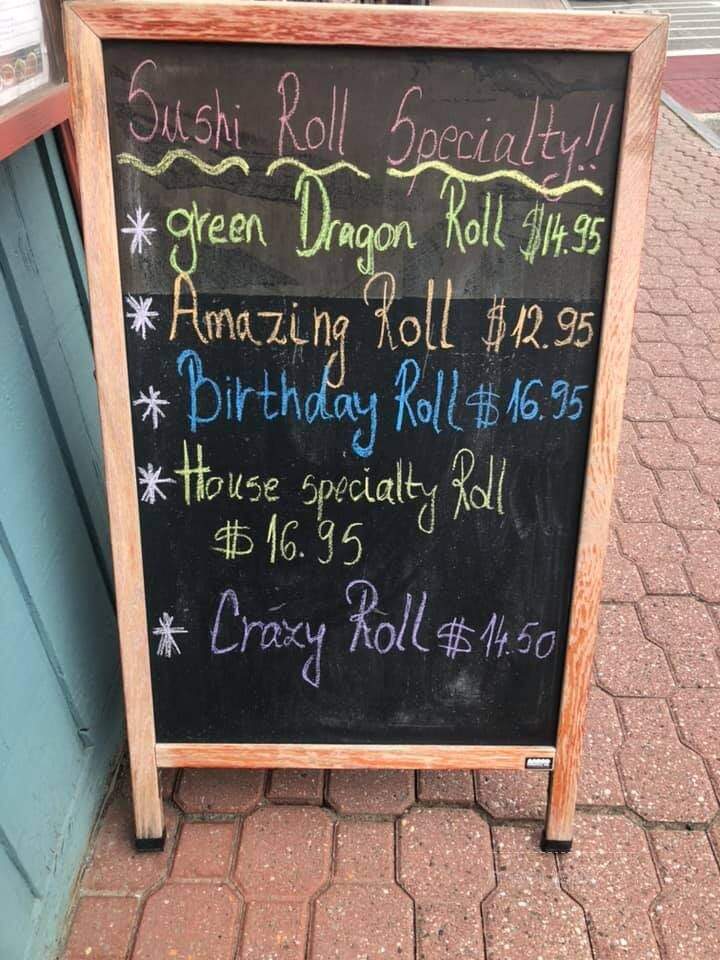 Sushi Roll Specialty!!
* green Dragon Roll $14.95
* Amazing Roll $12.95
* Birthday Roll $16.95
* House specialty Roll
$16.95
* Crazy Roll $14.50